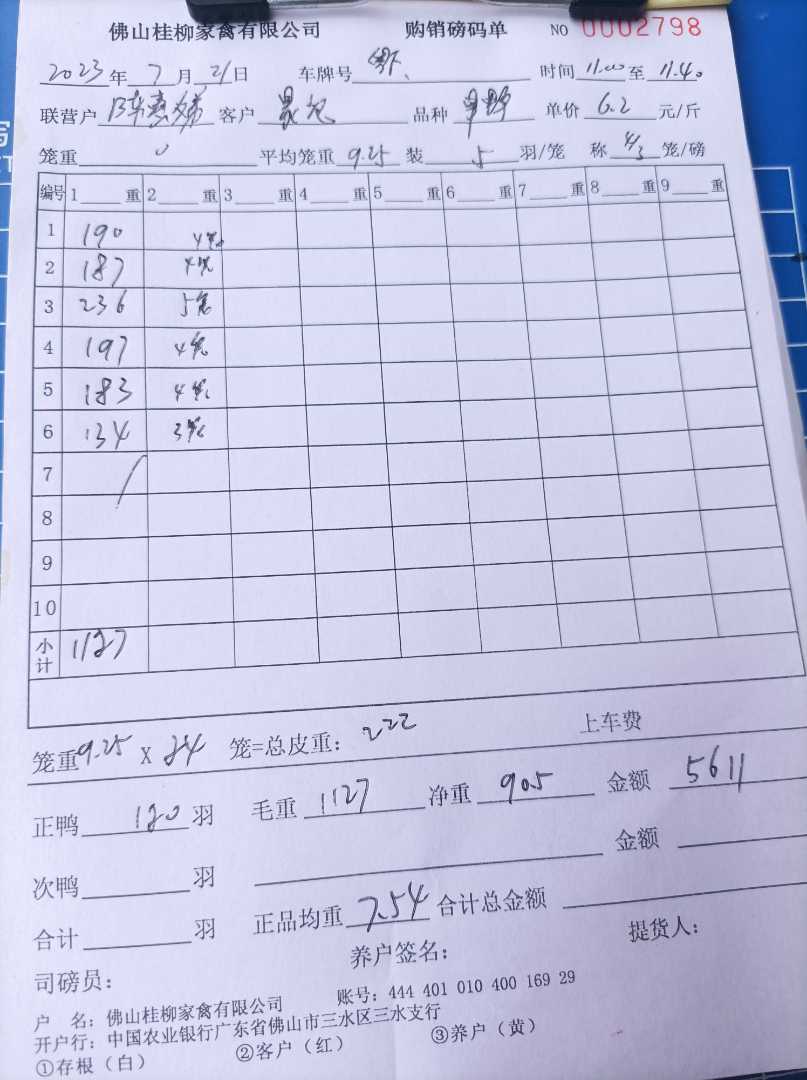 佛山桂柳家禽有限公司 购销磅码单 NO 0002798
2023年 7月 21日 车牌号 时间 11.00 至 11.40
联营户 客户 品种 单价 6.2 元/斤
笼重 0 平均笼重 9.25 装 5 羽/笼 称 4/3 笼/磅
编号 1 重 2 重 3 重 4 重 5 重 6 重 7 重 8 重 9 重
1 190 4笼
2 187 4笼
3 236 5笼
4 197 4笼
5 183 4笼
6 134 3笼
7 /
8
9
10
小计 1127
笼重 9.25 X 24 笼=总皮重: 222 上车费
正鸭 120 羽 毛重 1127 净重 905 金额 5611
次鸭 羽 金额
合计 羽 正品均重 7.54 合计总金额
司磅员: 养户签名: 提货人:
户 名: 佛山桂柳家禽有限公司 账号: 444 401 010 400 169 29
开户行: 中国农业银行广东省佛山市三水区三水支行
①存根（白） ②客户（红） ③养户（黄）